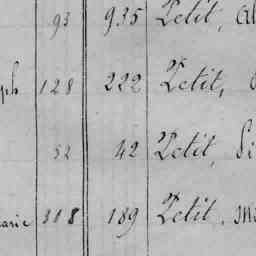 93 935 Petit, Al
ph 128 222 Petit,
52 42 Petit, Si
arie 318 189 Petit, M